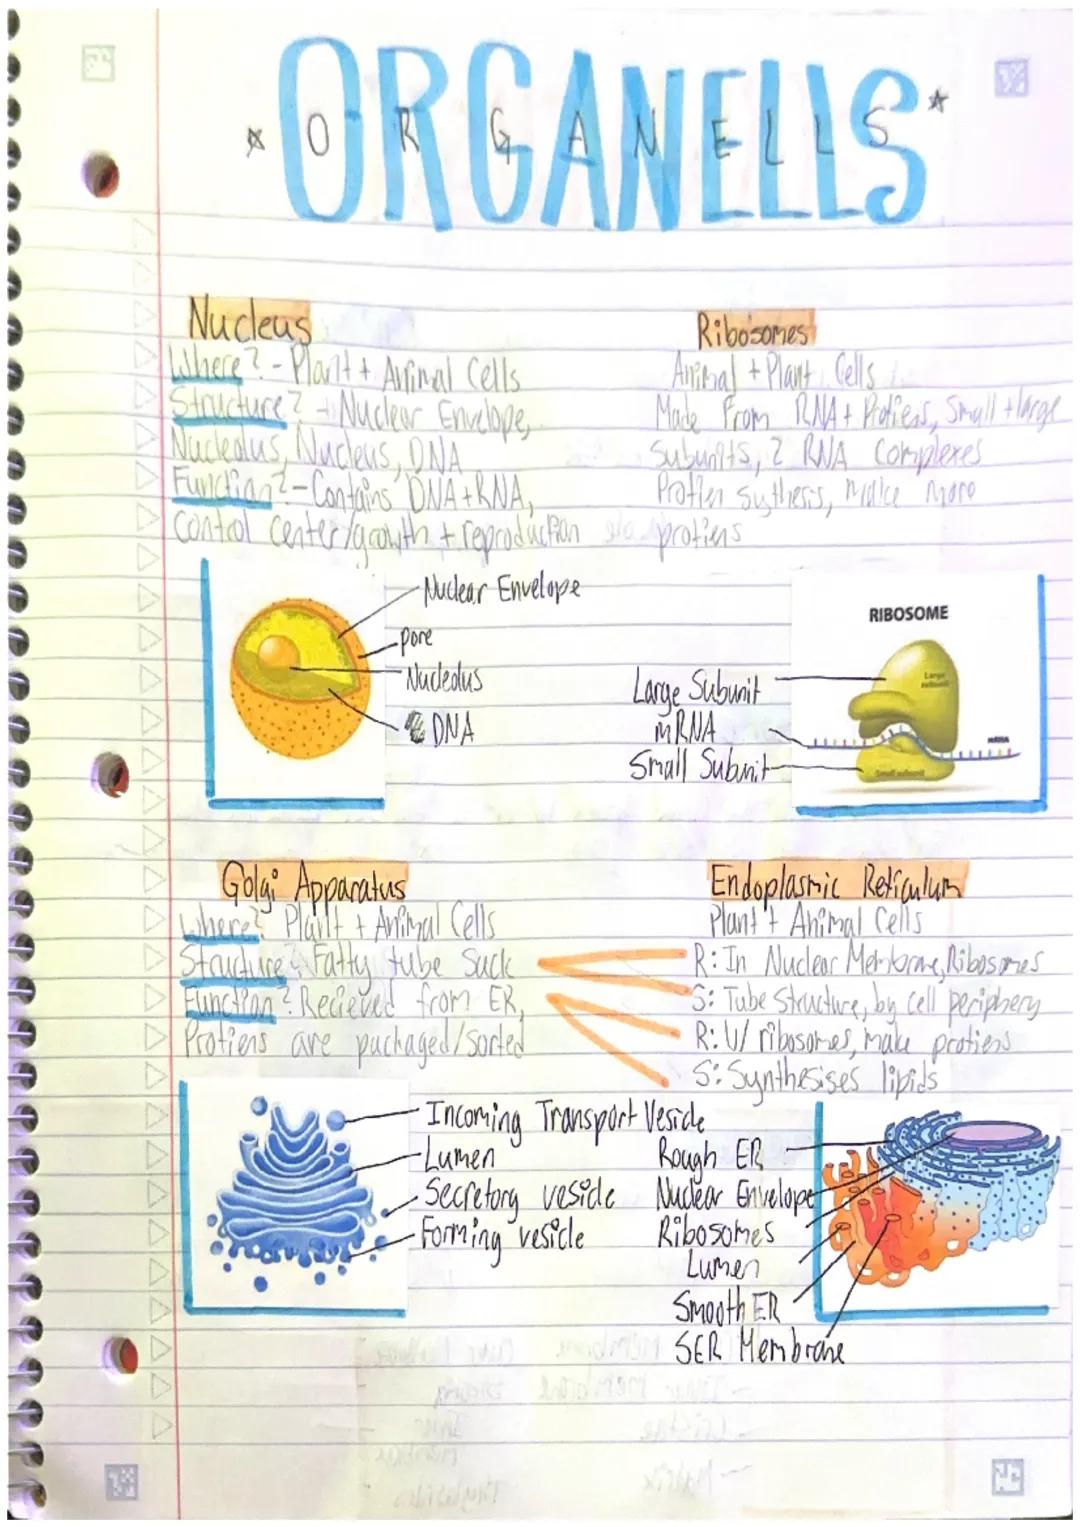 ORGANELLS
O R G A N E L L S
Nucleus
Where? - Plant + Animal Cells
Structure? - Nuclear Envelope,
Nucleolus, Nucleus, DNA
Function? - Contains DNA + RNA,
Control Center/growth + reproduction
Ribosomes
Animal + Plant Cells
Made From RNA + Protiens, Small + large
Subunits, 2 RNA Complexes
Protien Sythesis, make more
protiens
Nuclear Envelope
pore
Nucleolus
DNA
RIBOSOME
Large subunit
mRNA
Small subunit
Large Subunit
mRNA
Small Subunit
Golgi Apparatus
Where? Plant + Animal Cells
Structure? Fatty tube Suck
Function? Recieved from ER,
Protiens are packaged/Sorted
Endoplasmic Reticulum
Plant + Animal Cells
R: In Nuclear Membrane, Ribosomes
S: Tube Structure, by cell periphery
R: W/ ribosomes, make protiens
S: Synthesises lipids
Incoming Transport Vesicle
Lumen
Secretory vesicle
Forming vesicle
Rough ER
Nuclear Envelope
Ribosomes
Lumen
Smooth ER
SER Membrane